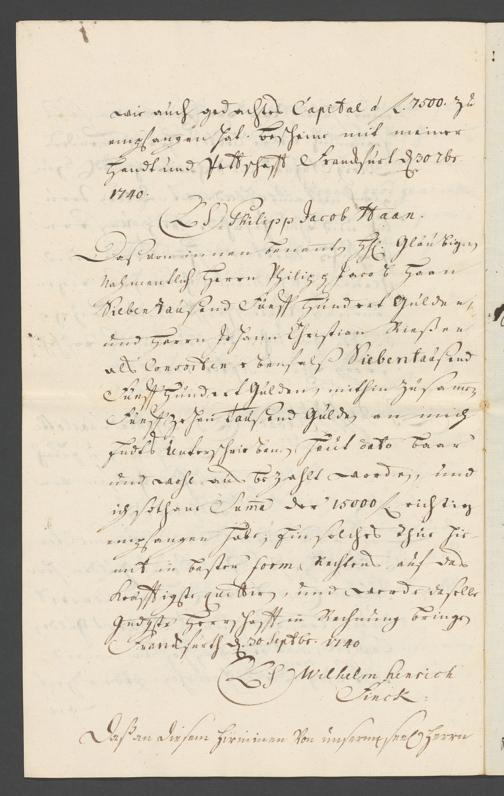 wie auch gedachtes Capital à f. 7500. zu
empfangen hat. bescheine mit meiner
Handt und Pettschafft Franckfurt d. 30 7br.
1740.
(LS) Philipp Jacob Haan.
Daß von innen benent H. Gläubigern
Nahmentlich Herrn Philipp Jacob Haan
Sieben tausend Fünff Hundert Gulden,
und Herrn Johann Christian Rießen
als Consorten ebenfals Siebentausend
Fünff Hundert Gulden, mithin zusamen
Fünffzehen tausend Gulden an mich
Endts Unterschriebenen heut dato baar
und wohl aus bezahlt worden, und
ich sothane Suma der 15000 f. richtig
empfangen habe, ein solches thue hie-
mit in bester form Rechtens auf das
kräfftigste quittiren, und werde daselbe
Gndgster Herrschafft in Rechnung bringen
Franckfurth d. 30 Septbr. 1740
(LS) Wilhelm Henrich
Finck.
Daß an diesem hierinnen von unserm seel. Herrn